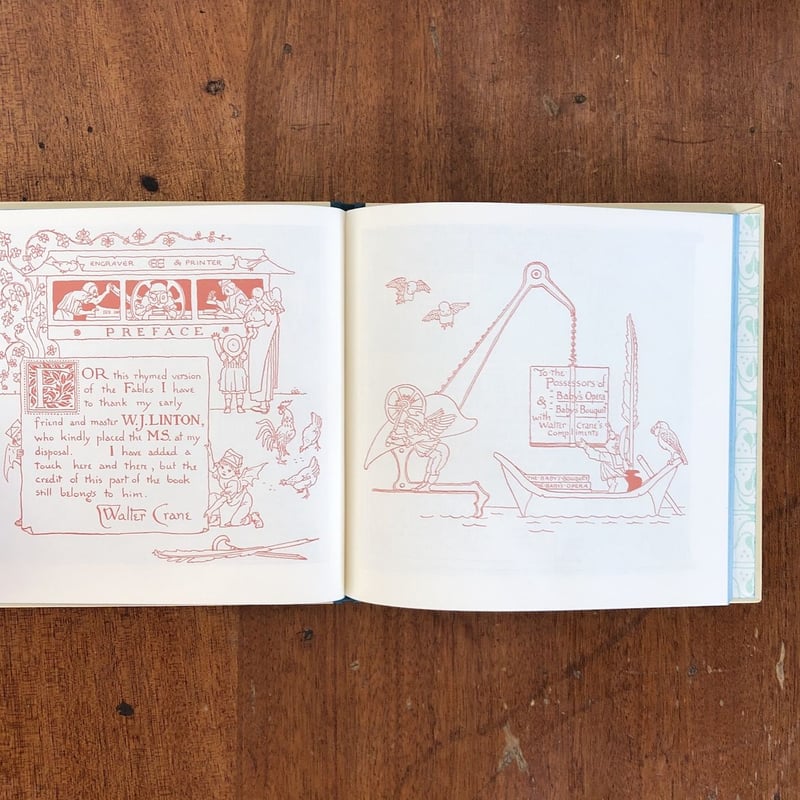 ENGRAVER & PRINTER
PREFACE
FOR this rhymed version
of the Fables I have
to thank my early
friend and master W.J. LINTON,
who kindly placed the MS. at my
disposal. I have added a
touch here and there, but the
credit of this part of the book
still belongs to him.
Walter Crane
To the
Possessors of
Baby's Opera
& Baby's Bouquet
with
Walter Crane's
compliments
THE BABY'S BOUQUET
BABY'S OPERA